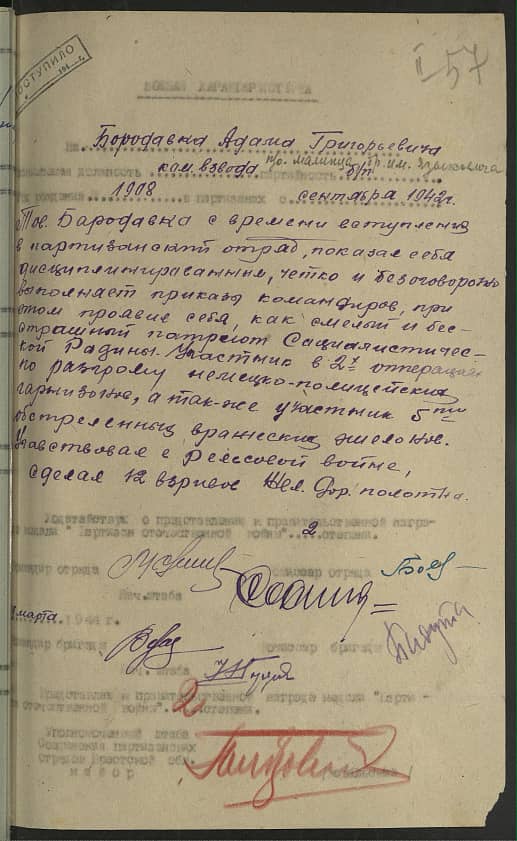 ПОСТУПИЛО
II 57
БОЕВАЯ ХАРАКТЕРИСТИКА
На Бородавка Адама Григорьевича
должность ком. взвода п/о. партийность б/п
год рождения 1908 в партизанах с сентября 1942 г.
Тов. Бародавка с времени вступления
в партизанский отряд, показал себя
дисциплинированным, четко и безоговорочно
выполняет приказы командиров, при
этом проявив себя, как смелый и бес-
страшный патриот Социалистичес-
кой Радины. Участник в 2х опперациях
по разгрому немецко-полицейских
гарнизонов, а так-же участник 5ти
обстреленных вражеских эшелонов.
Учавствовал в Рельсовой войне,
сделал 12 взрывов жел. дор. полотна.
Ходатайствую о представлении к правительственной награ-
де медали "Партизан отечественной войны" 2 степени.
Командир отряда Комиссар отряда
Нач. штаба
марта 1944 г.
Командир бригады Комиссар бригады
Нач. штаба
Представлен к правительственной награде медали "Парти-
зан отечественной войны". 2 степени.
Уполномоченный штаба
Соединения партизанских
отрядов Брестской обл.
майор